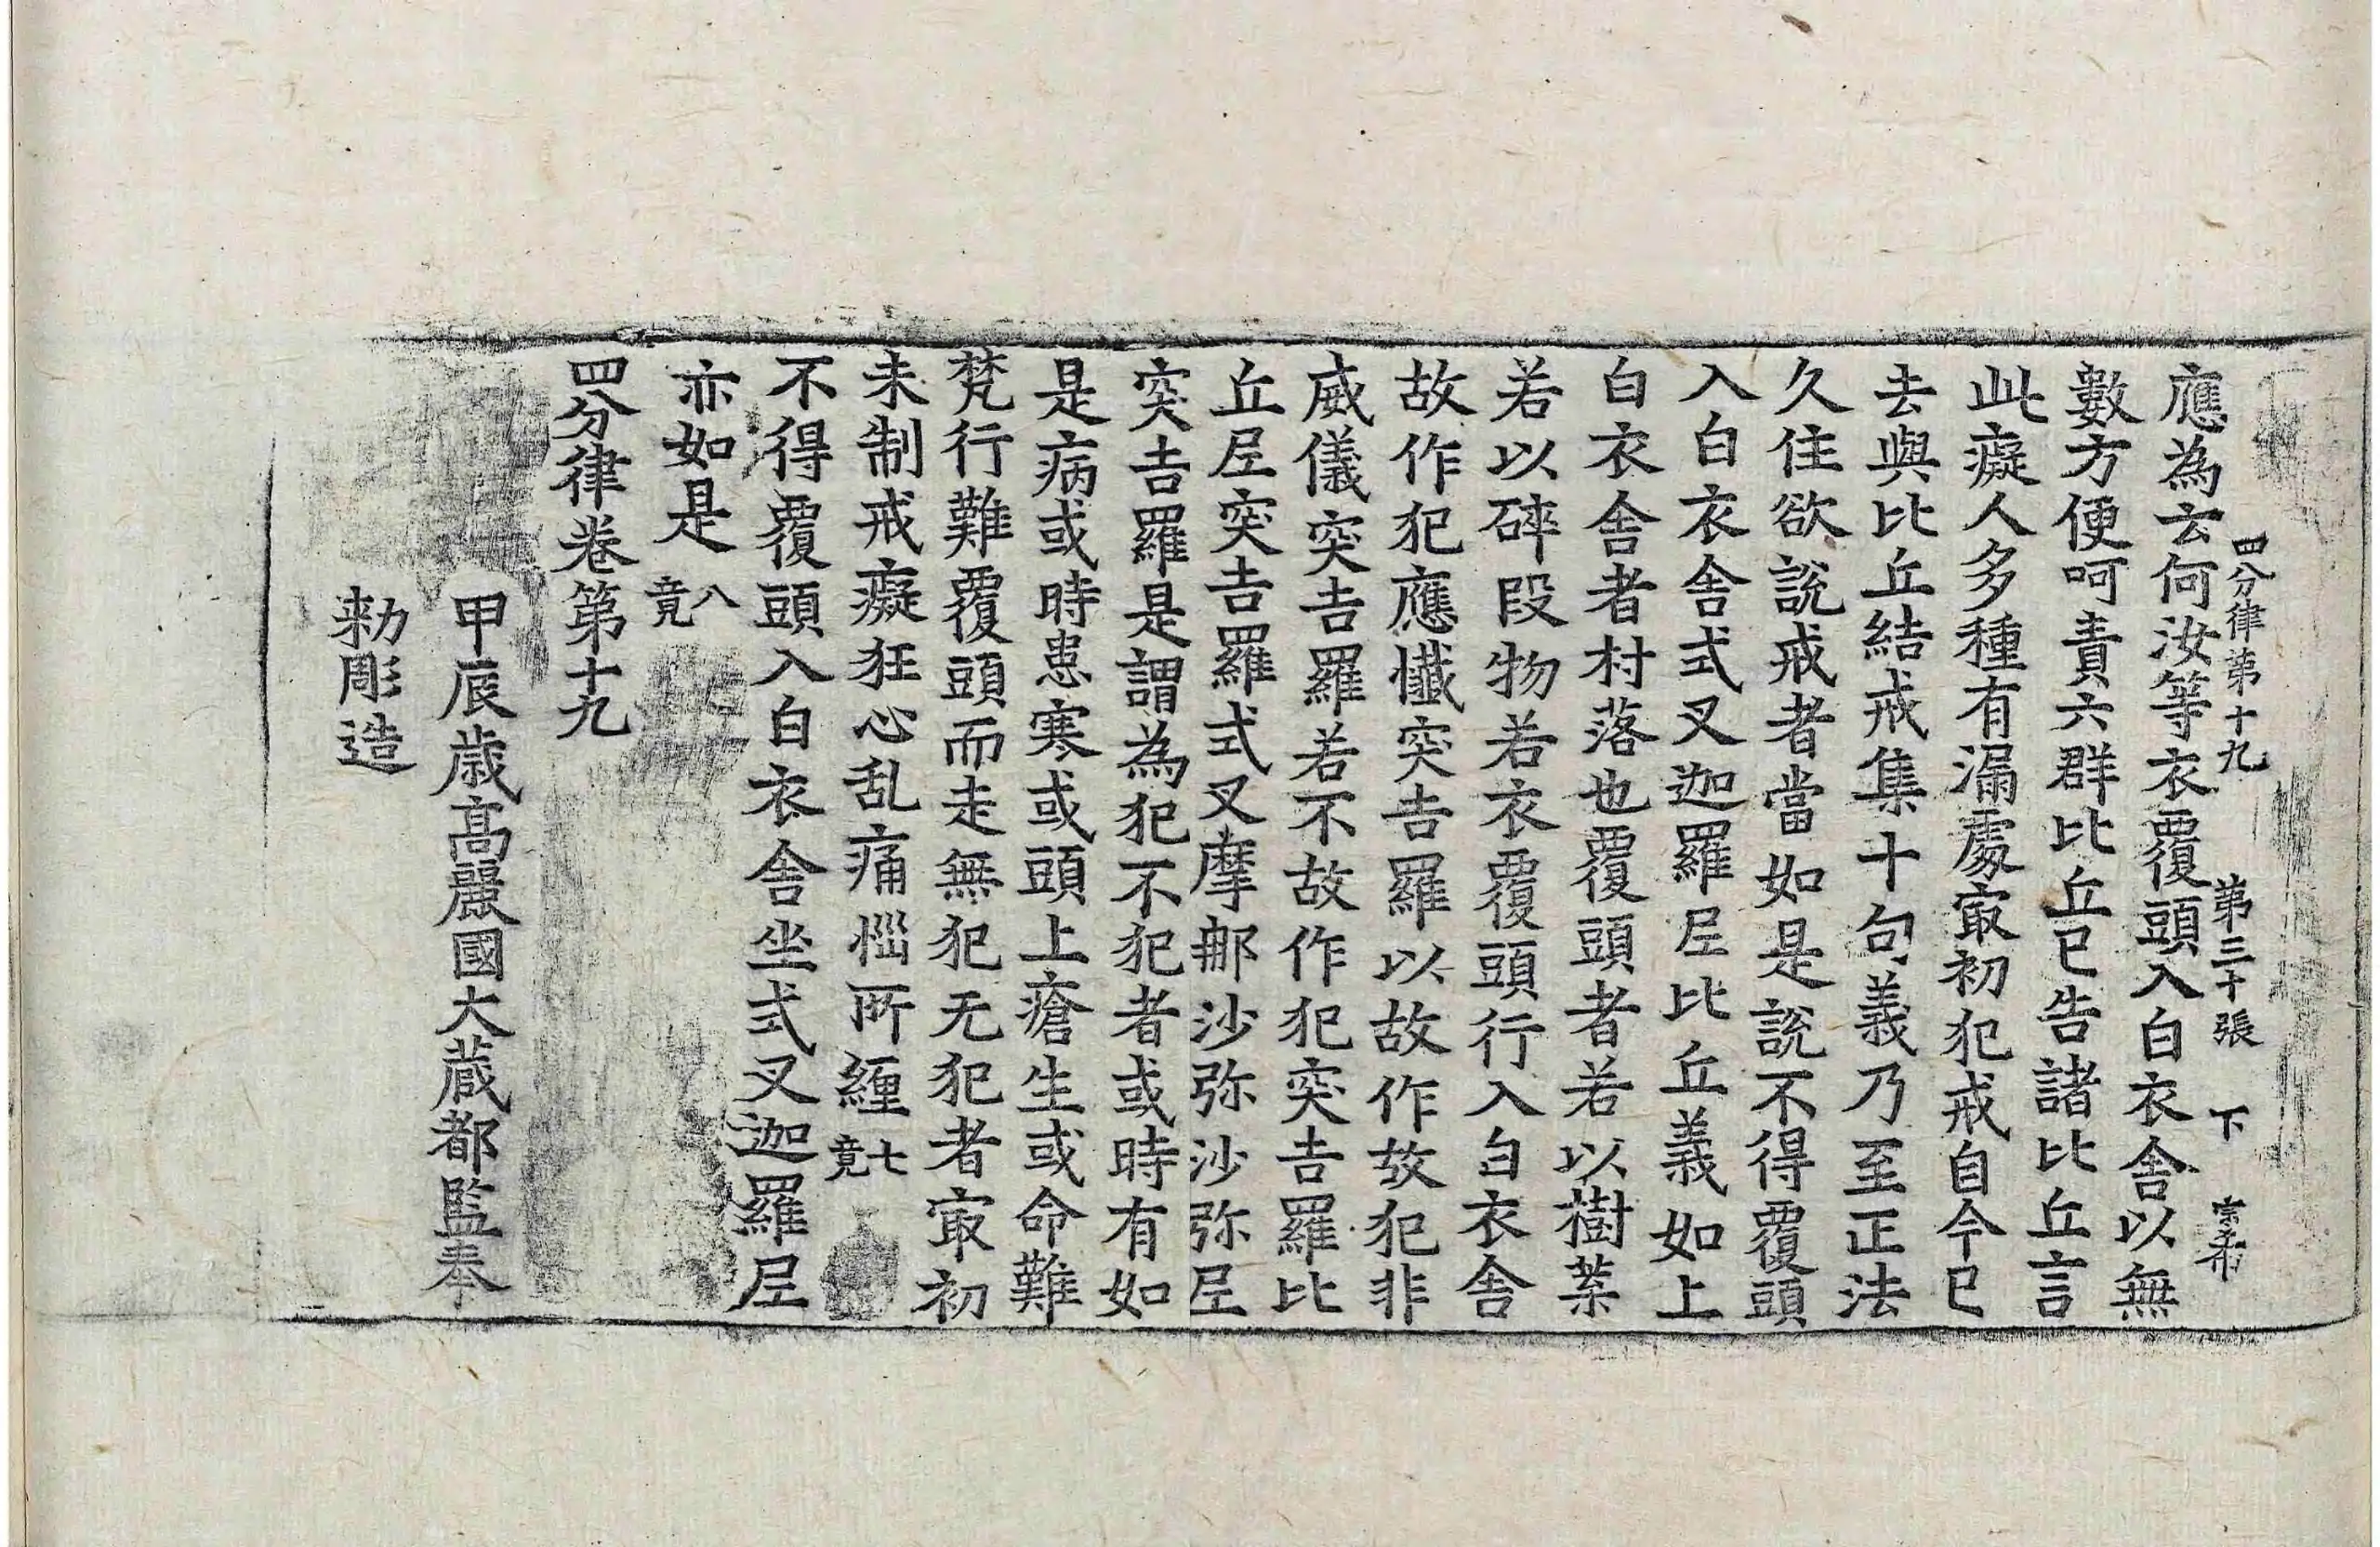 四分律第十九　第三十張　下　宗希
應為云何汝等衣覆頭入白衣舍以無
數方便呵責六群比丘已告諸比丘言
此癡人多種有漏處冣初犯戒自今已
去與比丘結戒集十句義乃至正法
久住欲說戒者當如是說不得覆頭
入白衣舍式叉迦羅尼比丘義如上
白衣舍者村落也覆頭者若以樹葉
若以碎段物若衣覆頭行入白衣舍
故作犯應懺突吉羅以故作故犯非
威儀突吉羅若不故作犯突吉羅比
丘尼突吉羅式叉摩那沙弥沙弥尼
突吉羅是謂為犯不犯者或時有如
是病或時患寒或頭上瘡生或命難
梵行難覆頭而走無犯无犯者冣初
未制戒癡狂心乱痛惱所纏七竟
不得覆頭入白衣舍坐式叉迦羅尼
亦如是八竟
四分律卷第十九
甲辰歲高麗國大藏都監奉
勑彫造